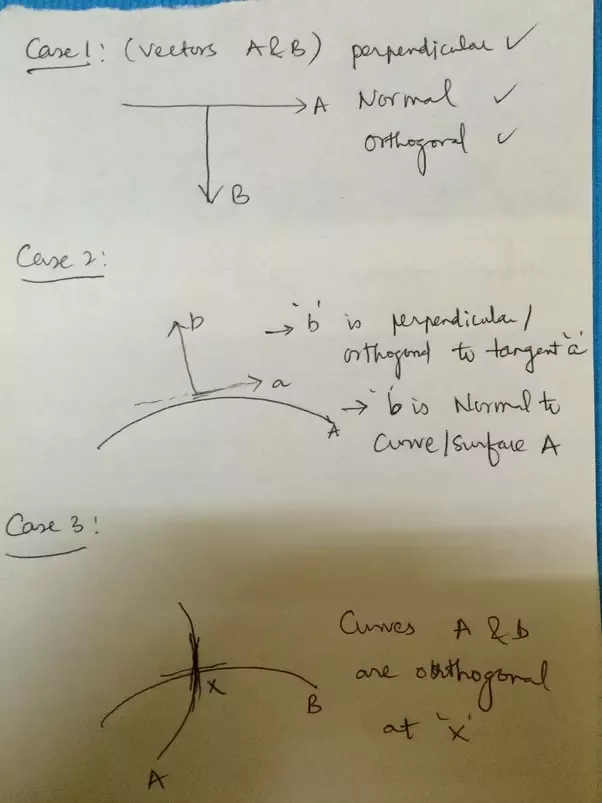 Case 1: (Vectors A & B) perpendicular ✓
A Normal ✓
orthogonal ✓
B
Case 2:
b → 'b' is perpendicular/
orthogonal to tangent 'a'
a
→ 'b is Normal to
A
Curve/surface A
Case 3:
Curves A & B
are orthogonal
X
B
at 'x'
A